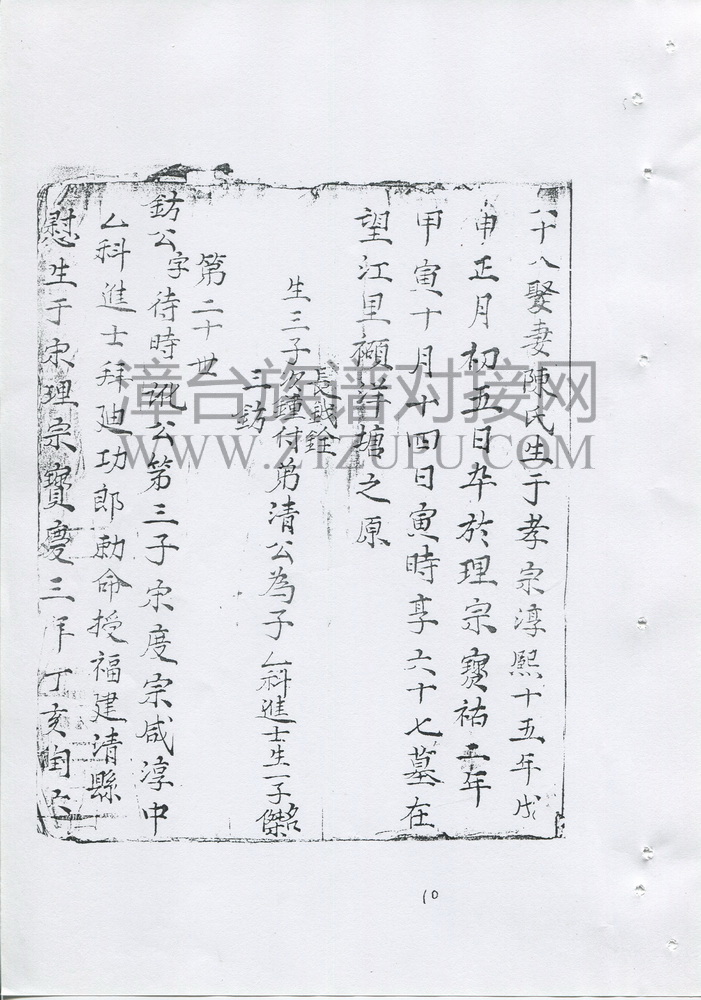 八十八娶妻陳氏生于孝宗淳熙十五年戊
申正月初五日卒於理宗寶祐二年
甲寅十月十四日寅時享六十七墓在
望江里塘之原
長鉞銓
生三子次鍾付弟清公為子乙科進士生一子名傑
三鈁
第二十世
鈁公字待時公第三子宗度宗咸淳中
乙科進士拜廸功郎勅命授福建清縣
慰生于宋理宗寶慶三年丁亥閏六
漳台族谱对接网
WWW.ZTZUPU.COM
10